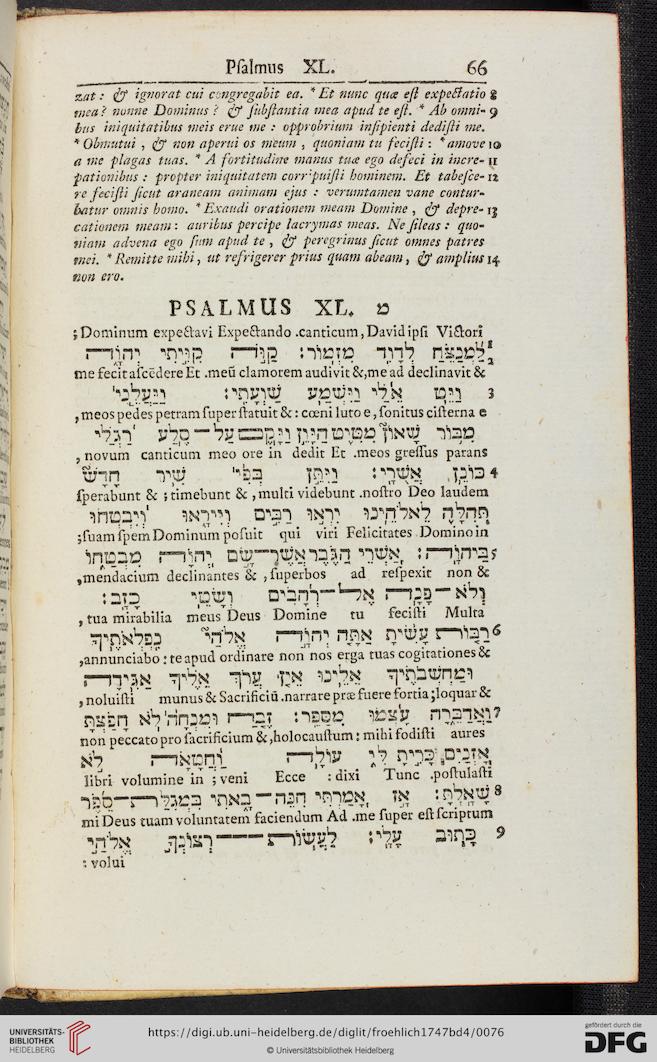 Psalmus XL. 66
zat: & ignorat cui congregabit ea. * Et nunc quæ est expectatio 8
mea? nonne Dominus? & substantia mea apud te est. * Ab omni- 9
bus iniquitatibus meis erue me: opprobrium insipienti dedisti me.
* Obmutui, & non aperui os meum, quoniam tu fecisti: * amove 10
a me plagas tuas. * A fortitudine manus tuæ ego defeci in incre- 11
pationibus: propter iniquitatem corripuisti hominem. Et tabesce- 12
re fecisti sicut araneam animam ejus: verumtamen vane contur-
batur omnis homo. * Exaudi orationem meam Domine, & depre- 13
cationem meam: auribus percipe lacrymas meas. Ne sileas: quo-
niam advena ego sum apud te, & peregrinus sicut omnes patres
mei. * Remitte mihi, ut refrigerer prius quam abeam, & amplius 14
non ero.
PSALMUS XL. מ
;Dominum expectavi Expectando .canticum, David ipsi Victori
לַמְנַצֵּחַ לְדָוִד מִזְמוֹר: קַוֹּה קִוִּיתִי יְהוָה 1 2
me fecit ascēdere Et .meū clamorem audivit &, me ad declinavit &
וַיֵּט אֵלַי וַיִּשְׁמַע שַׁוְעָתִי: וַיַּעֲלֵנִי 3
, meos pedes petram super statuit &: cœni luto e, sonitus cisterna e
מִבּוֹר שָׁאוֹן מִטִּיט הַיָּוֵן וַיָּקֶם עַל־סֶלַע רַגְלַי
, novum canticum meo ore in dedit Et .meos gressus parans
כּוֹנֵן אֲשֻׁרָי: וַיִּתֵּן בְּפִי שִׁיר חָדָשׁ 4
sperabunt & ; timebunt &, multi videbunt .nostro Deo laudem
תְּהִלָּה לֵאלֹהֵינוּ יִרְאוּ רַבִּים וְיִירָאוּ וְיִבְטְחוּ
;suam spem Dominum posuit qui viri Felicitates .Domino in
בַּיהוָה: אַשְׁרֵי הַגֶּבֶר אֲשֶׁר־שָׂם יְהוָה מִבְטַחוֹ 5
, mendacium declinantes &, superbos ad respexit non &
וְלֹא־פָנָה אֶל־רְהָבִים וְשָׂטֵי כָזָב:
, tua mirabilia meus Deus Domine tu fecisti Multa
רַבּוֹת עָשִׂיתָ אַתָּה יְהוָה אֱלֹהַי נִפְלְאֹתֶיךָ 6
,annunciabo: te apud ordinare non nos erga tuas cogitationes &
וּמַחְשְׁבֹתֶיךָ אֵלֵינוּ אֵין עֲרֹךְ אֵלֶיךָ אַגִּידָה
, noluisti munus & Sacrificiū .narrare præ fuere fortia; loquar &
וַאֲדַבֵּרָה עָצְמוּ מִסַּפֵּר: זֶבַח וּמִנְחָה לֹא חָפַצְתָּ 7
non peccato pro sacrificium &, holocaustum: mihi fodisti aures
אָזְנַיִם כָּרִיתָ לִּי עוֹלָה וַחֲטָאָה לֹא
libri volumine in ; veni Ecce : dixi Tunc .postulasti
שָׁאָלְתָּ: אָז אָמַרְתִּי הִנֵּה־בָאתִי בִּמְגִלַּת־סֵפֶר 8
mi Deus tuam voluntatem faciendum Ad .me super est scriptum
כָּתוּב עָלָי: לַעֲשׂוֹת־רְצוֹנְךָ אֱלֹהַי 9
: volui
UNIVERSITÄTS-
BIBLIOTHEK
HEIDELBERG
https://digi.ub.uni-heidelberg.de/diglit/froehlich1747bd4/0076
© Universitätsbibliothek Heidelberg
gefördert durch die
DFG